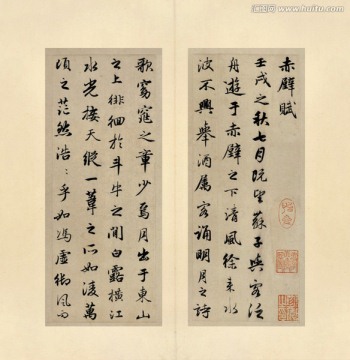 赤壁賦
壬戌之秋七月既望蘇子與客泛
舟遊于赤壁之下清風徐来水
波不興舉酒屬客誦明月之詩
歌窈窕之章少焉月出于東山
之上徘徊於斗牛之間白露橫江
水光接天縱一葦之所如凌萬
頃之茫然浩〻乎如馮虛御風而